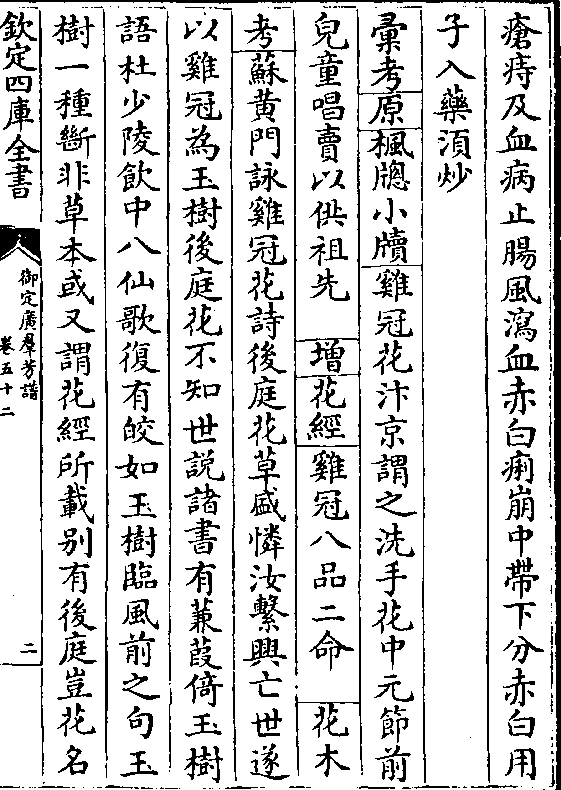 瘡痔及血病止腸風瀉血赤白痢崩中帶下分赤白用
子入藥須炒
彚考原楓牕小牘雞冠花汴京謂之洗手花中元節前
兒童唱賣以供祖先 增花經雞冠八品二命 花木
考蘇黃門詠雞冠花詩後庭花草盛憐汝繫興亡世遂
以雞冠為玉樹後庭花不知世説諸書有蒹葭倚玉樹
語杜少陵飲中八仙歌復有皎如玉樹臨風前之句玉
樹一種斷非草本或又謂花經所載别有後庭豈花名
欽定四庫全書
御定廣羣芳譜
卷五十二
二